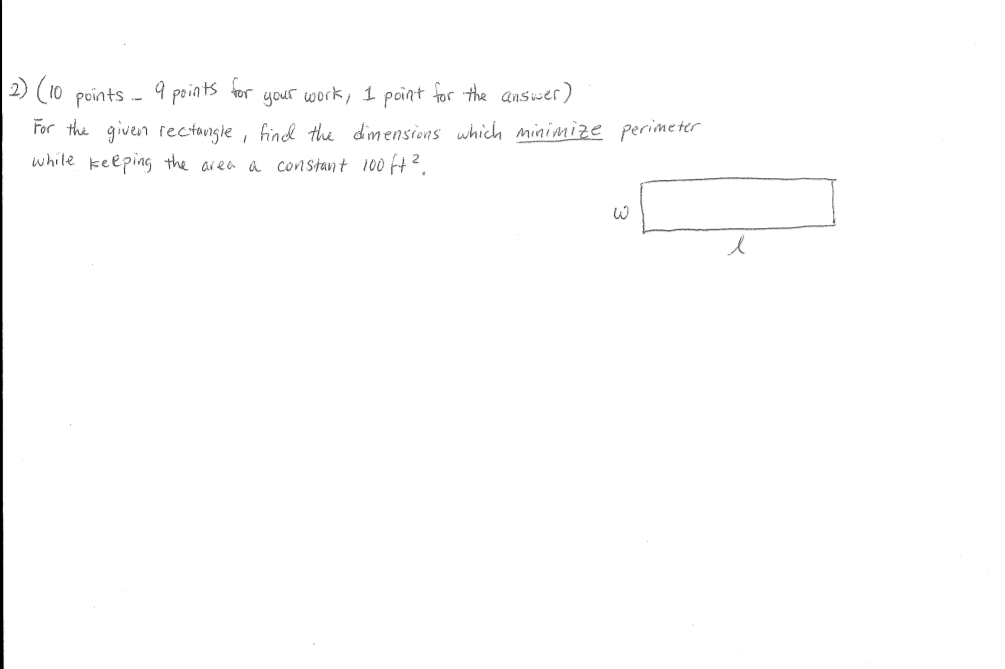 2) (10 points - 9 points for your work, 1 point for the answer)
For the given rectangle, find the dimensions which minimize perimeter
while keeping the area a constant 100 ft².
w
l